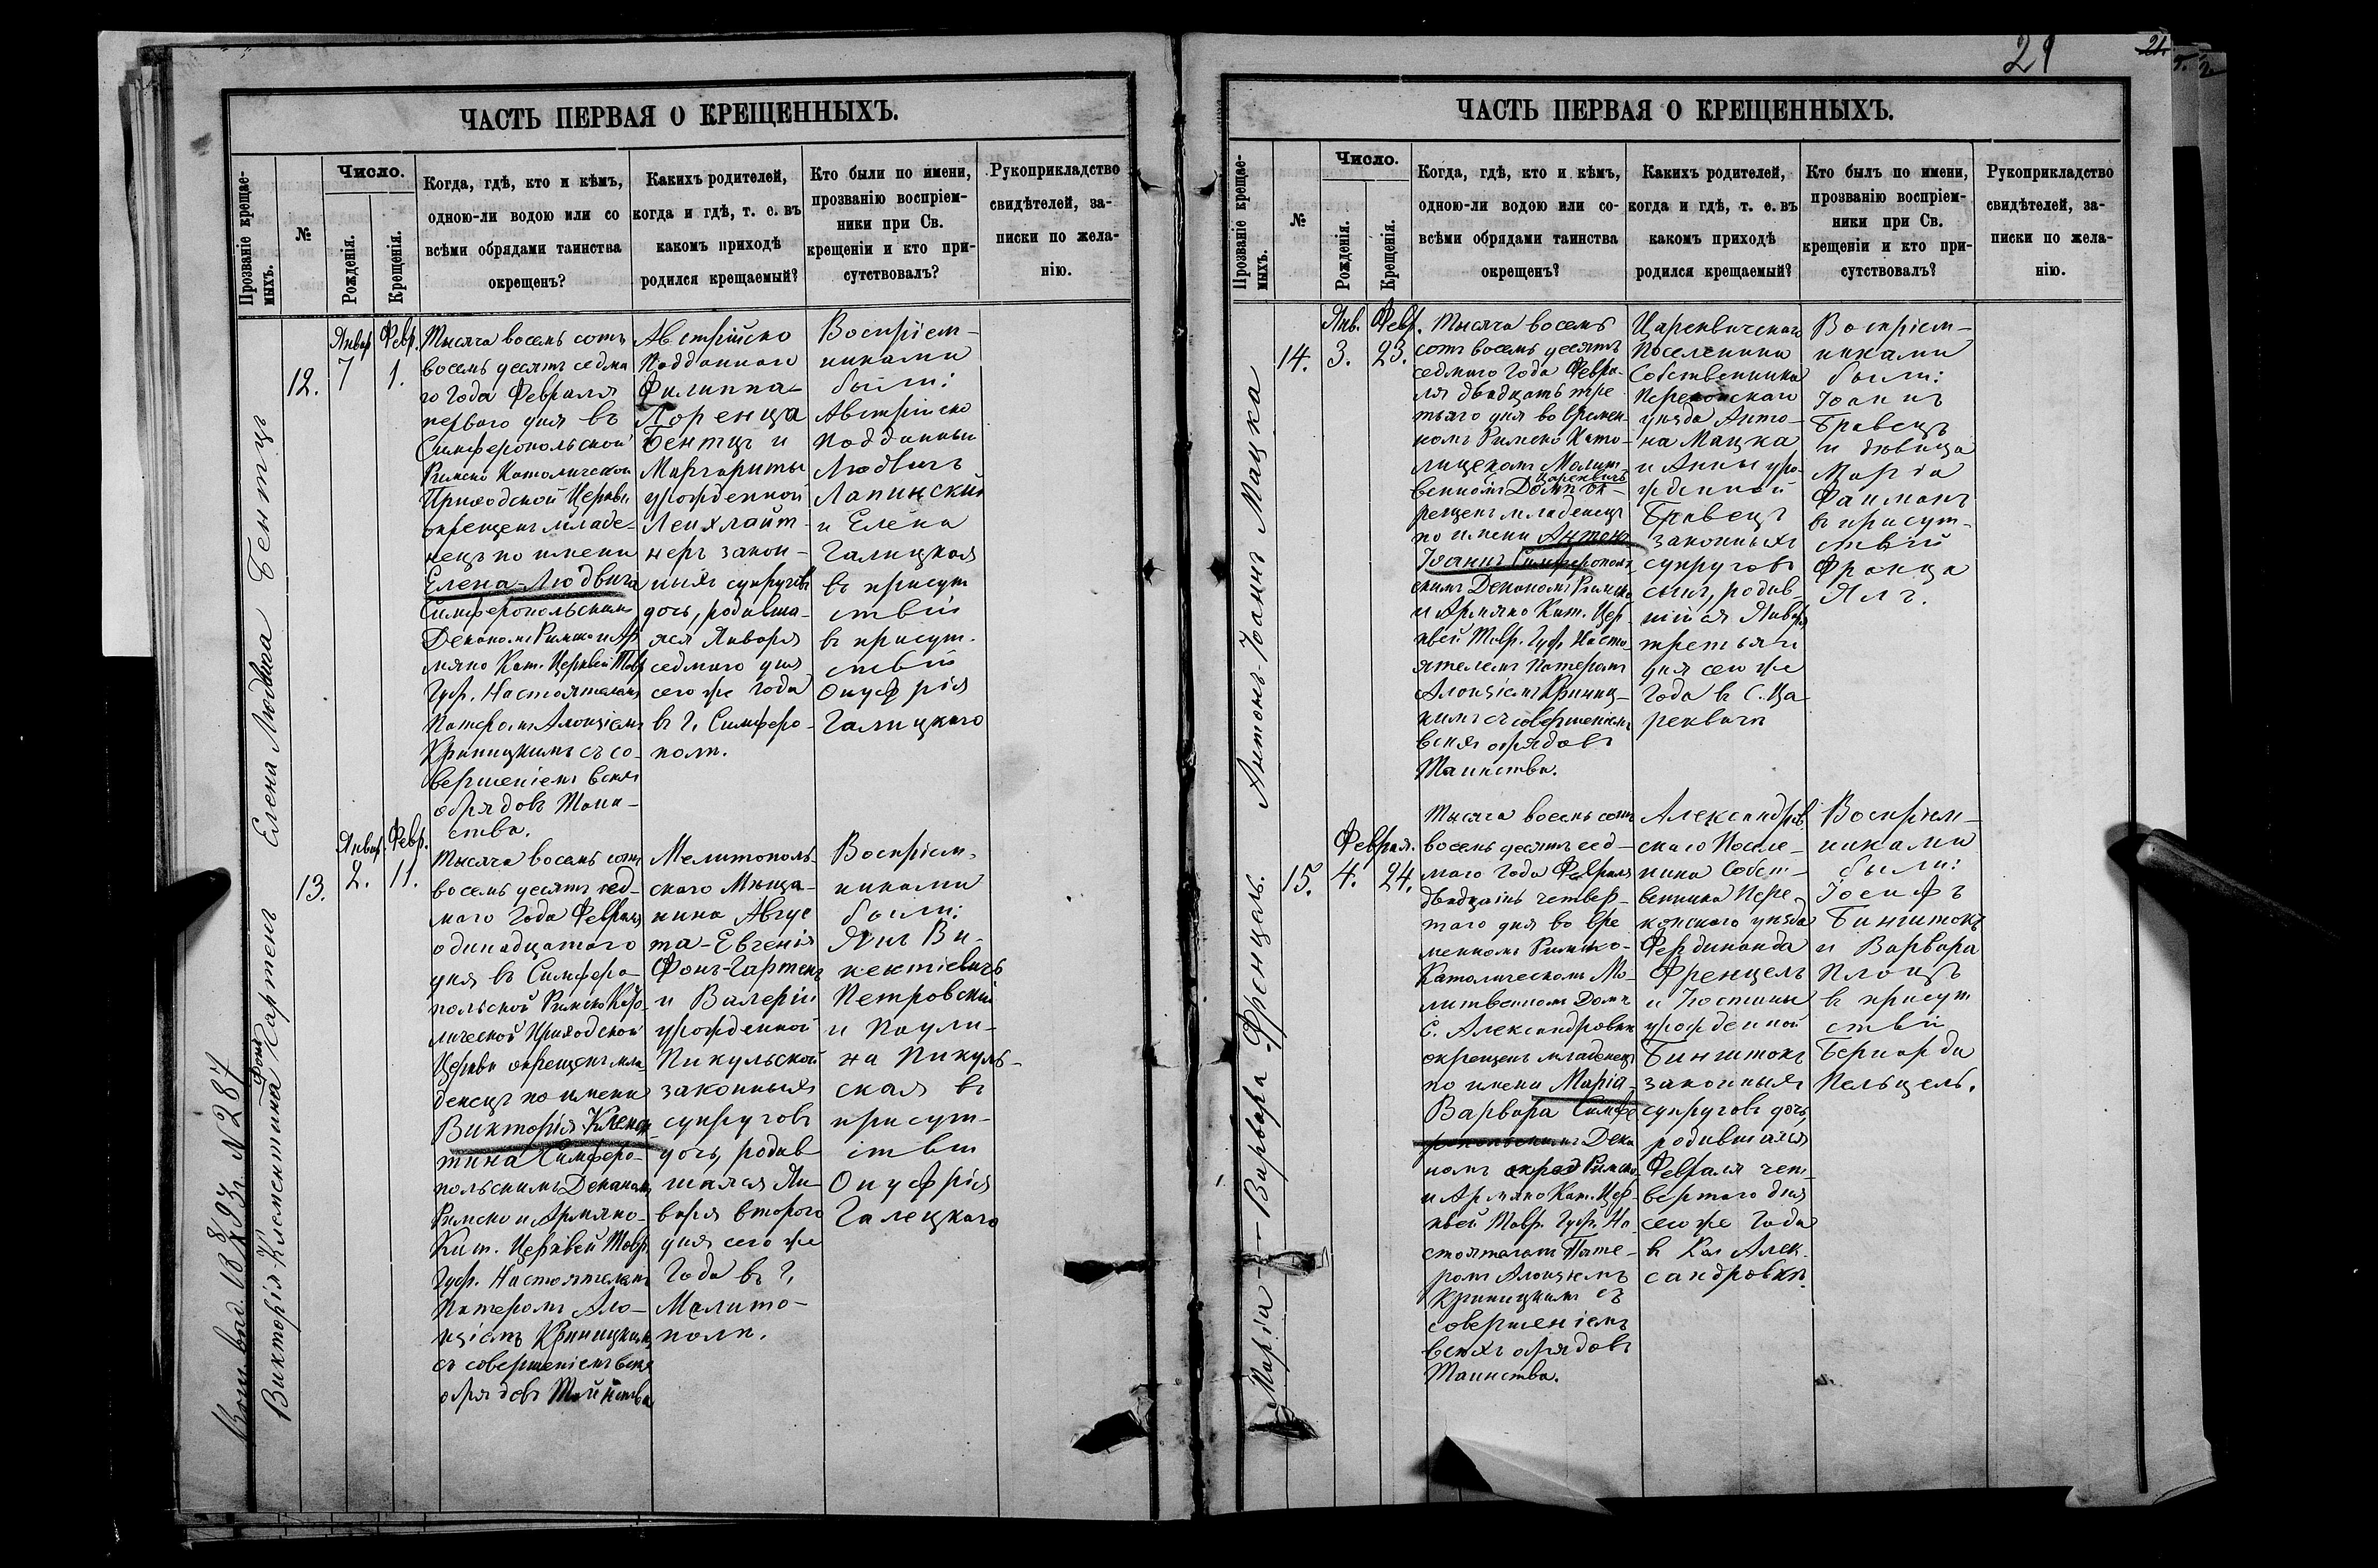 ЧАСТЬ ПЕРВАЯ О КРЕЩЕННЫХЪ.
Прозваніе крещае-
мыхъ.
№
Число.
Рожденія.
Крещенія.
Когда, гдѣ, кто и кѣмъ,
одною-ли водою или со
всѣми обрядами таинства
окрещенъ?
Какихъ родителей,
когда и гдѣ, т. е. въ
какомъ приходѣ
родился крещаемый?
Кто были по имени,
прозванію воспріем-
ники при Св.
крещеніи и кто при-
сутствовалъ?
Рукоприкладство
свидѣтелей, за-
писки по жела-
нію.
Елена Людвига Бентцъ
12.
Январ
7
Февр.
1.
Тысяча восемь сотъ
восемь десятъ седма
го года Февраля
перваго дня въ
Симферопольской
Римско Католической
Приходской Церкви
окрещенъ младе-
нецъ по имени
Елена-Людвига
Симферопольскимъ
Деканомъ Римско и Ар
мяно Кат. Церквей Тавр
Губ. Настоятелемъ
Патеромъ Алоизіемъ
Криницкимъ съ со-
вершеніемъ всѣхъ
обрядовъ Таин-
ства.
Австрійско
Подданнаго
Филиппа-
Лоренца
Бентцъ и
Маргариты
урожденной
Лейхлайт-
неръ закон-
ныхъ супруговъ
дочь, родивша-
яся Января
седмаго дня
сего же года
въ г. Симферо-
полѣ.
Воспріем-
никами
были:
Австрійско
подданный
Людвигъ
Лапинскій
и Елена
Галицкая
въ присут
ствіи
въ присут-
ствіи
Онуфрія
Галицкаго
Викторія-Клементина фонъ
Гартенъ
Конт. выд. 1893 г. N 287
13.
Январ.
2.
Февр.
11.
Тысяча восемь сотъ
восемь десятъ сед-
маго года Февраля
одинадцатаго
дня въ Симферо-
польской Римско Като-
лической Приходской
Церкви окрещенъ мла-
денецъ по имени
Викторія-Клемен
тина Симферо-
польскимъ Деканомъ
Римско и Армяно-
Кат. Церквей Тавр.
Губ. Настоятелемъ
Патеромъ Ало-
изіемъ Криницкимъ
съ совершеніемъ всѣхъ
обрядовъ Таинства
Мелитополь-
скаго Мѣща-
нина Авгус
та-Евгенія
Фонъ-Гартенъ
и Валеріи
урожденной
Пикульской
законныхъ
супруговъ
дочь, родив
шаяся Ян-
варя втораго
дня сего же
года въ г.
Мелито-
полѣ.
Воспріем-
никами
были:
Янъ Ви-
кентіевичъ
Петровскій
и Паули-
на Пикуль-
ская въ
присут-
ствіи
Онуфрія
Галецкаго
21
21.
ЧАСТЬ ПЕРВАЯ О КРЕЩЕННЫХЪ.
Прозваніе крещае-
мыхъ.
№
Число.
Рожденія.
Крещенія.
Когда, гдѣ, кто и кѣмъ,
одною-ли водою или со-
всѣми обрядами таинства
окрещенъ?
Какихъ родителей,
когда и гдѣ, т. е. въ
какомъ приходѣ
родился крещаемый?
Кто былъ по имени,
прозванію воспріем-
ники при Св.
крещеніи и кто при-
сутствовалъ?
Рукоприкладство
свидѣтелей, за-
писки по жела-
нію.
Антонъ-Іоаннъ Мацка
14.
Янв.
3.
Февр.
23.
Тысяча восемь
сотъ восемь десятъ
седмаго года Февра-
ля двадцать тре
тьяго дня во времен-
номъ Римско Като-
лицскомъ Молит-
венномъ Домѣ Цареквичъ ок-
рещенъ младенецъ
по имени Антонъ
Іоаннъ Симферополь-
скимъ Деканомъ Римско
и Армяно Кат. Цер-
квей Тавр. Губ. Насто-
ятелемъ Патеромъ
Алоизіемъ Криниц-
кимъ съ совершеніемъ
всѣхъ обрядовъ
Таинства.
Цареквичскаго
Поселянина
Собственника
Перекопскаго
уѣзда Анто-
на Мацка
и Анны уро-
жденной
Бравецъ
законныхъ
супруговъ
сынъ, родив-
шійся Января
третьяго
дня сего же
года въ С. Ца-
реквичъ
Воспріем-
никами
были:
Іоаннъ
Бравецъ
и дѣвица
Марія
Файманъ
въ присут-
ствіи
Франца
Ялч.
Марія-Варвара Френцель.
15.
Февраля.
4.
24.
Тысяча восемь сотъ
восемь десятъ сед-
маго года Февраля
двадцать четвер-
таго дня во вре
менномъ Римско-
Католическомъ Мо-
литвенномъ Домѣ
С. Александровки
окрещенъ младенецъ
по имени Марія-
Варвара Симфе
ропольскимъ Дека
номъ Римско
и Армяно Кат. Цер-
квей Тавр. Губ. На-
стоятелемъ Пате-
ромъ Алоизіемъ
Криницкимъ съ
совершеніемъ
всѣхъ обрядовъ
Таинства.
Александров.
скаго Посе­ле-
нина Собст-
венника Пере-
копскаго уѣзда
Фердинанда
Френцель
и Юстины
урожденной
Бинштокъ
законныхъ
супруговъ дочь,
родившаяся
Февраля чет-
вертаго дня
сего же года
въ Кол Алек-
сандровкѣ.
Воспріем-
никами
были:
Іосифъ
Бинштокъ
и Варвара
Плоцъ
въ присут
ствіи
Бернарда
Пельцель.